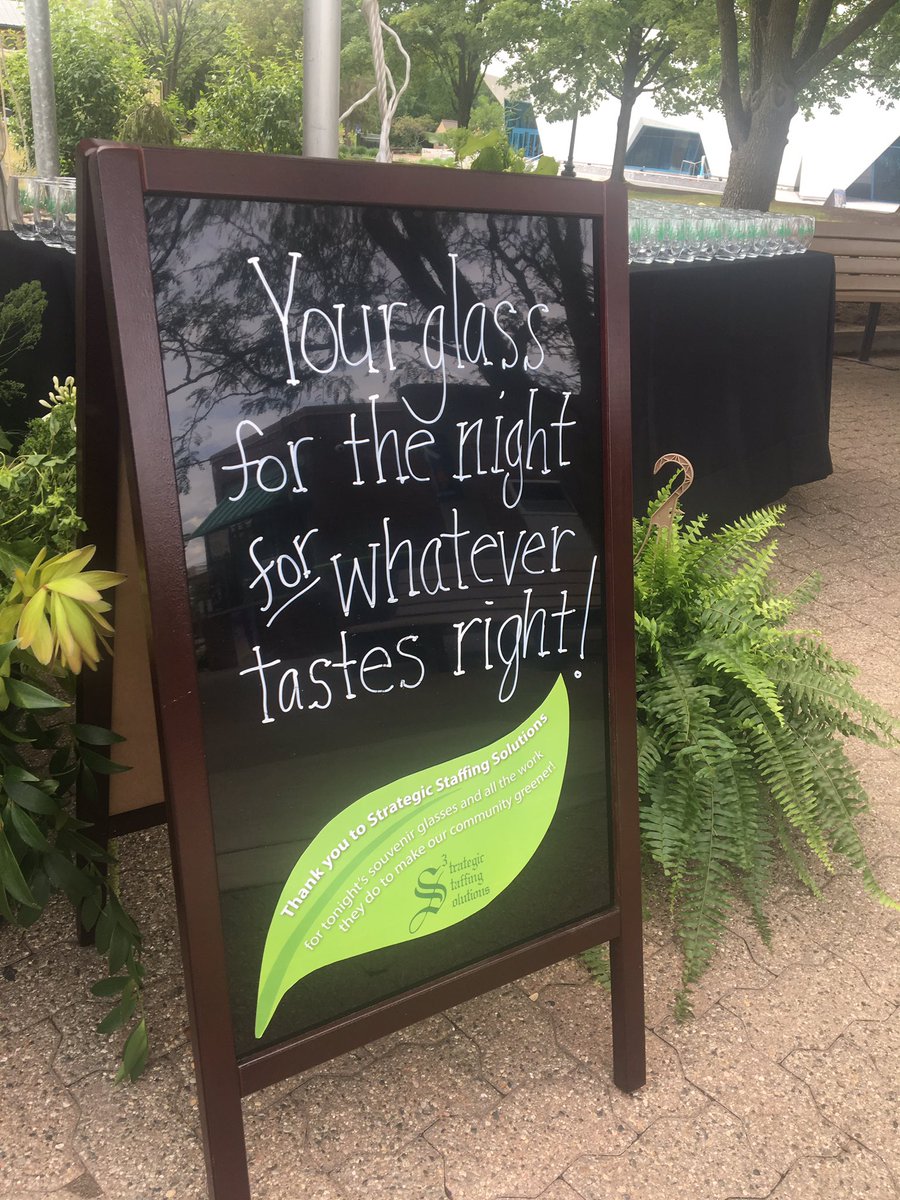 Your glass
for the night
for whatever
tastes right!
Thank you to Strategic Staffing Solutions
for tonight's souvenir glasses and all the work
they do to make our community greener!
S3trategic
taffing
olutions